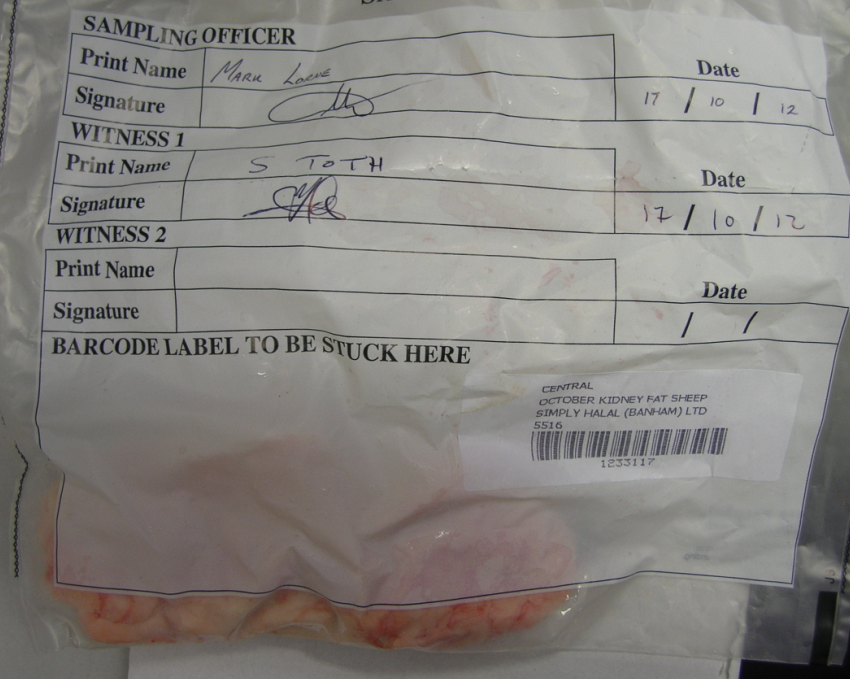 SAMPLING OFFICER
Print Name Mark
Date
Signature 17 / 10 / 12
WITNESS 1
Print Name S TOTH
Date
Signature 17 / 10 / 12
WITNESS 2
Print Name
Date
Signature / /
BARCODE LABEL TO BE STUCK HERE
CENTRAL
OCTOBER KIDNEY FAT SHEEP
SIMPLY HALAL (BANHAM) LTD
5516
1233117